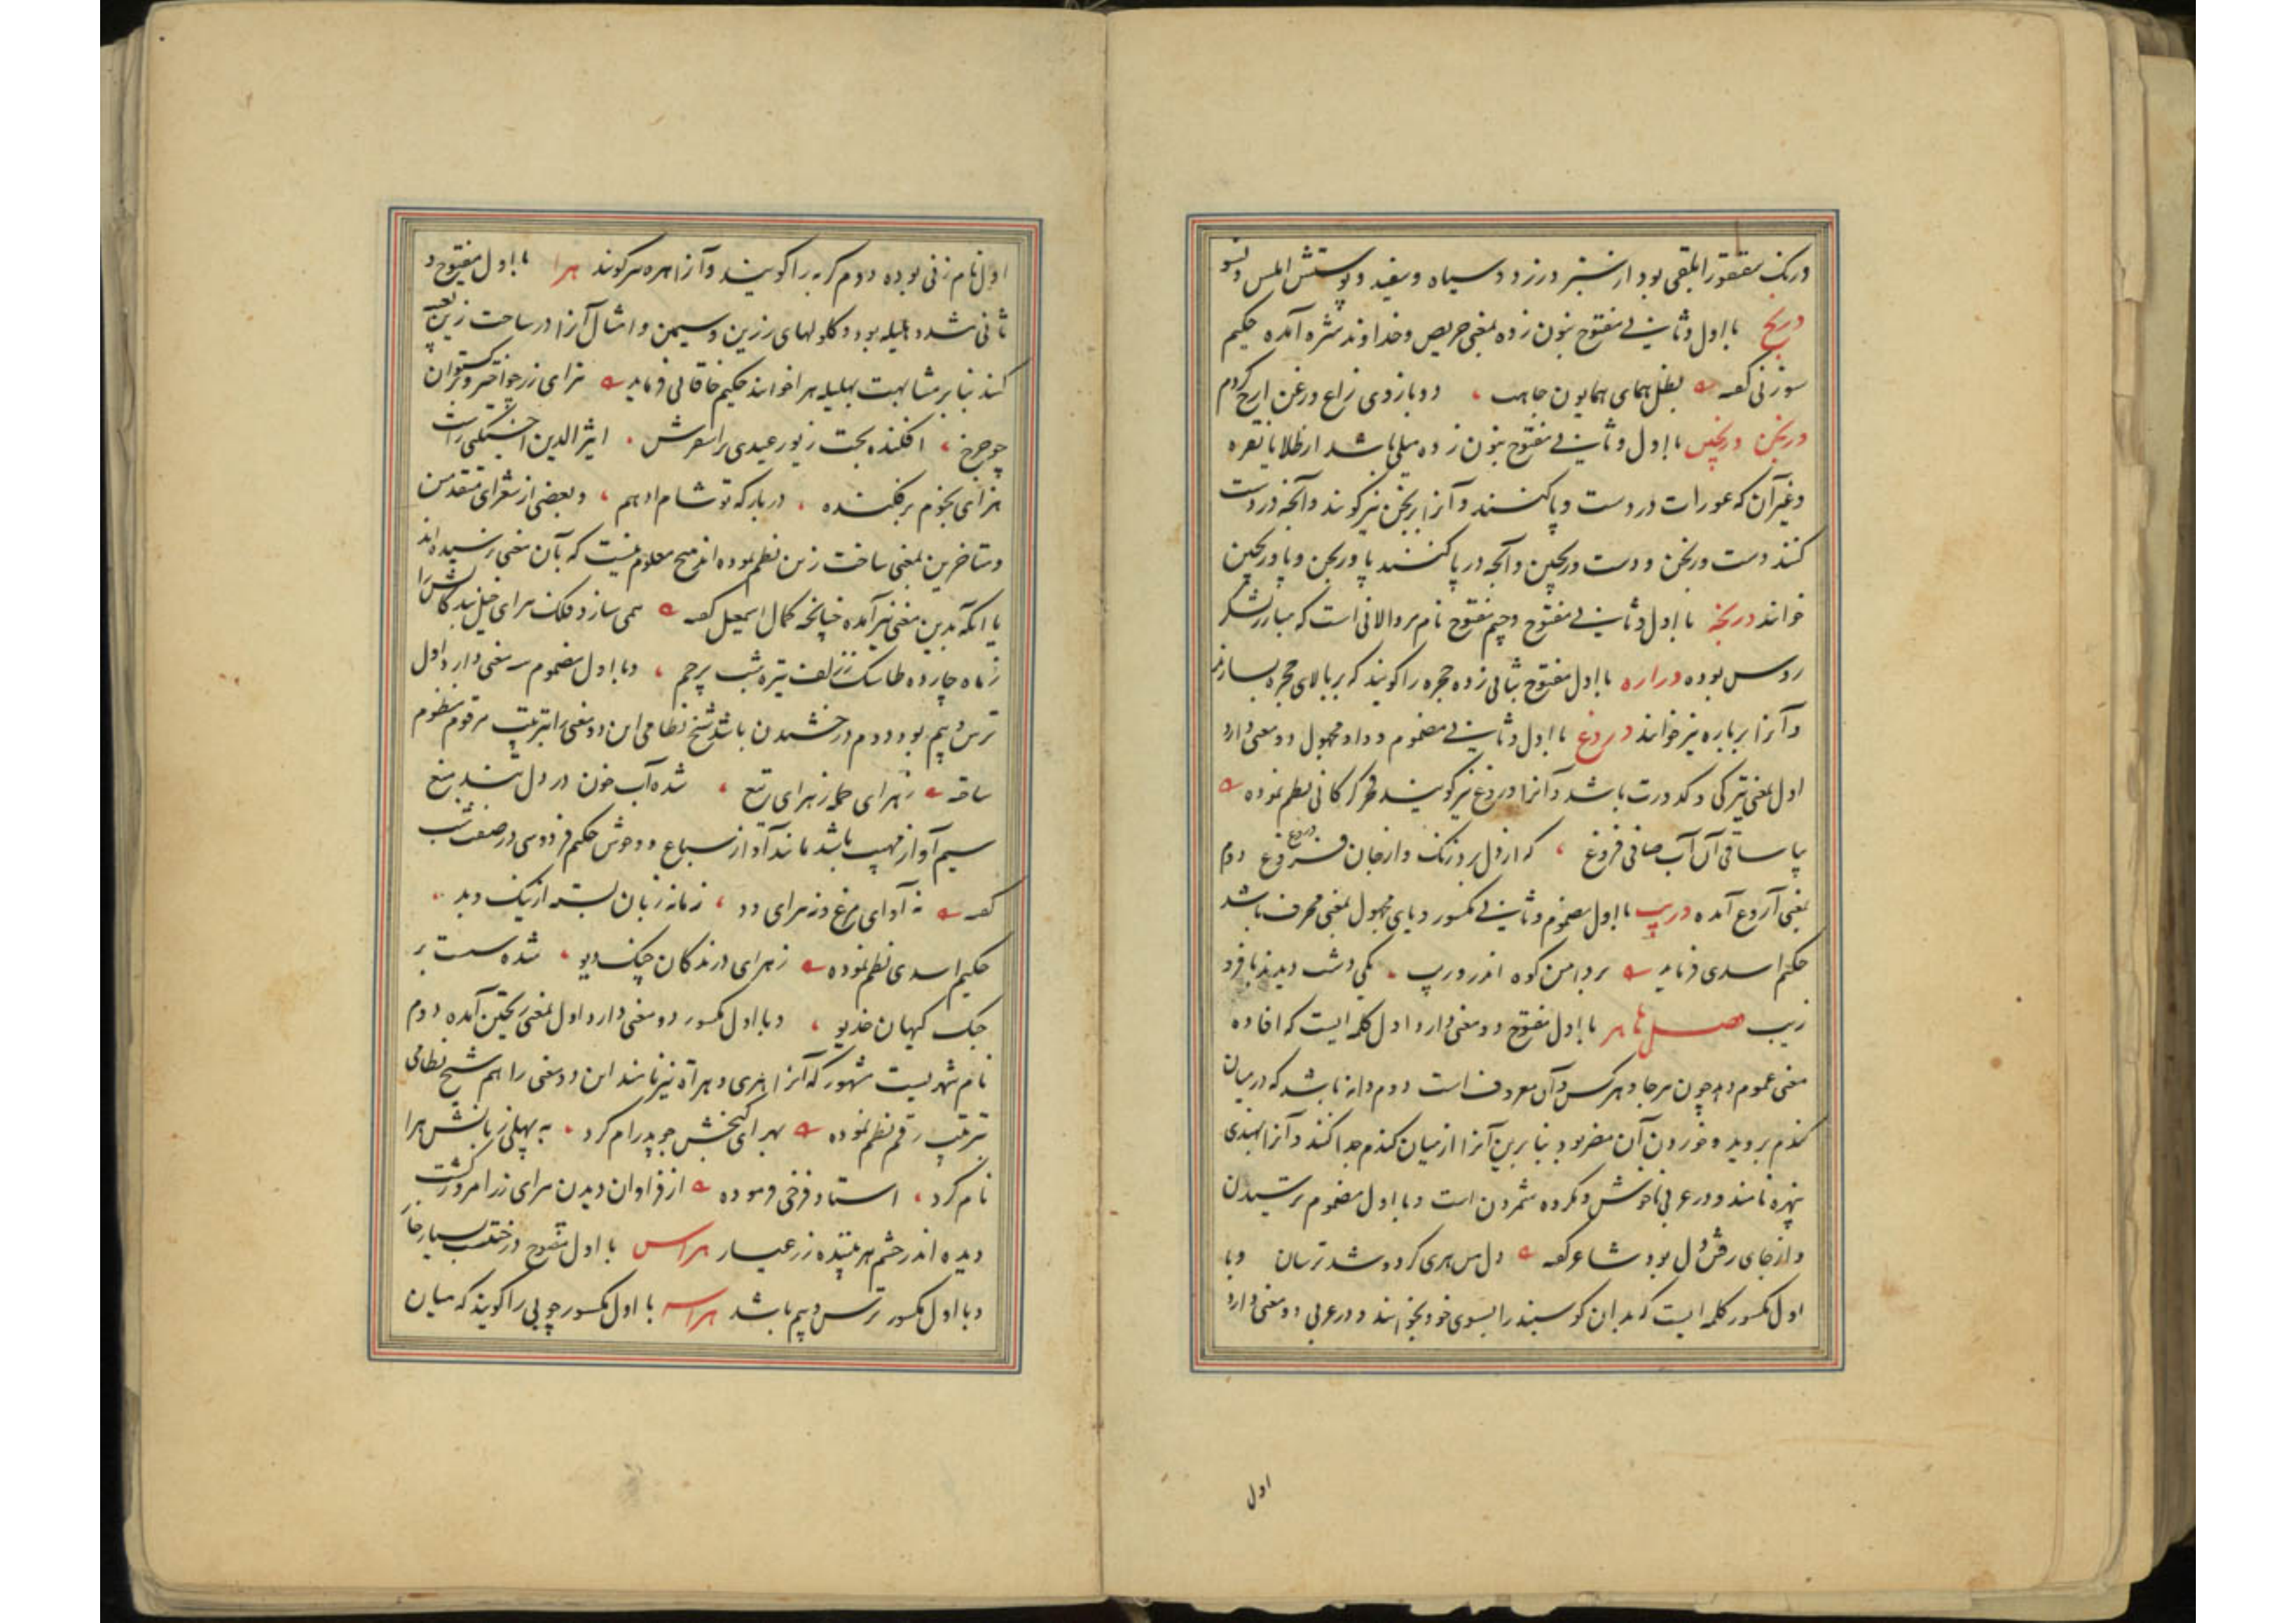 در رنگ سقنقور ابلقی بود از سبز و زرد و سیاه و سفید و پوستش املس و
ورنج با اول و ثانی مفتوح بنون زده بمعنی حریص و خداوند شره آمده حکیم
سوزنی گفته بظل همای همایون جاهت دو بازوی زاغ و زغن ارج کردم
ورنجن ورنجین با اول و ثانی مفتوح بنون زده میلی باشد از طلا یا نقره
و غیر آن که عورات در دست و پا کنند و آنرا برنجن نیز گویند و آنچه در دست
کنند دست ورنجن و دست ورنجین و آنچه در پا کنند پا ورنجن و پا ورنجین
خوانند ورنجه با اول و ثانی مفتوح و جیم مفتوح نام مروالانی است که مبارز لشکر
روس بوده وراره با اول مفتوح بثانی زده حجره را گویند که بر بالای حجره بسازند
و آنرا برباره نیز خوانند وروغ با اول و ثانی مضموم و واو مجهول دو معنی دارد
اول بمعنی تیرگی و کدورت باشد و آنرا وروغ نیز گویند فخر گرگانی نظم نموده
بیا ساقی آن آب صافی فروغ که از دل برد زنگ و از جان وروغ دوم
بمعنی آروغ آمده وریب با اول مضموم و ثانی مکسور و یای مجهول بمعنی محرف باشد
حکیم اسدی فرماید بر دامن کوه اندر وریب یکی دشت دیدند با فر و
زیب فصل ها هر با اول مفتوح دو معنی دارد اول کلمه ایست که افاده
معنی عموم دهد چون هر جا و هر کس و آن معروف است دوم دانه باشد که در میان
گندم بروید و خوردن آن مضر بود بنا برین آنرا از میان گندم جدا کنند و آنرا بهندی
نامند و در عربی ناخوش و مکروه شمردن است و با اول مضموم ترسیدن
و از جای رفتن دل بود شاعر گفته دل من هری کرد و شد ترسان و با
اول مکسور کلمه ایست که بدان گوسپند را بسوی خود بخوانند و در عربی دو معنی دارد
اول
اول نام زنی بوده دوم گربه را گویند و آنرا هره نیز گویند هرا با اول مفتوح و
ثانی مشدد هلیله بود و گلولهای زرین و سیمین و امثال آنرا در ساخت زین تعبیه
کنند بنا بر مشابهت بهلیله هرا خوانند حکیم خاقانی فرماید هرای زر چو اختر و برگستوان
چو چرخ افکنده بخت زیور عیدی بر اسقرش اثیر الدین اخسیکتی راست
هرای نجوم برفکنده در بارگه تو شام ادهم و بعضی از شعرای متقدمین
و متاخرین بمعنی ساخت زین نظم نموده اند هیچ معلوم نیست که بآن معنی نرسیده اند
یا آنکه بدین معنی نیز آمده چنانچه کمال اسمعیل گفته همی سازد فلک هرای خیل بندگانش را
ز ماه چارده طاسک ز زلف تیره شب پرچم و با اول مضموم سه معنی دارد اول
ترس و بیم بود دوم درخشیدن باشد شیخ نظامی این دو معنی را بترتیب مرقوم منظوم
ساخته ز هرای حمله ز هرای تیغ شده آب خون در دل تند میغ
سیم آواز مهیب باشد مانند آواز سباع و وحوش حکیم فردوسی در صفت شب
گفته نه آوای مرغ و نه هرای دد زمانه زبان بسته از نیک و بد
حکیم اسدی نظم نموده ز هرای درندگان چنگ دیو شده سست بر
جنگ کیهان خدیو و با اول مکسور دو معنی دارد اول بمعنی ریختن آمده دوم
نام شهریست مشهور که آنرا هری و هراه نیز نامند این دو معنی را هم شیخ نظامی
بترتیب رقم نظم نموده بهرای گنجش چو پدرام کرد به پهلوی زبانش هرا
نام کرد استاد فرخی فرموده از فراوان دیدن هرای زر امروز گشت
دیده اندر چشم هر بیننده زر عیار هراس با اول مفتوح درختیست بسیار خار
و با اول مکسور ترس و بیم باشد هراسه با اول مکسور چوبی را گویند که میان